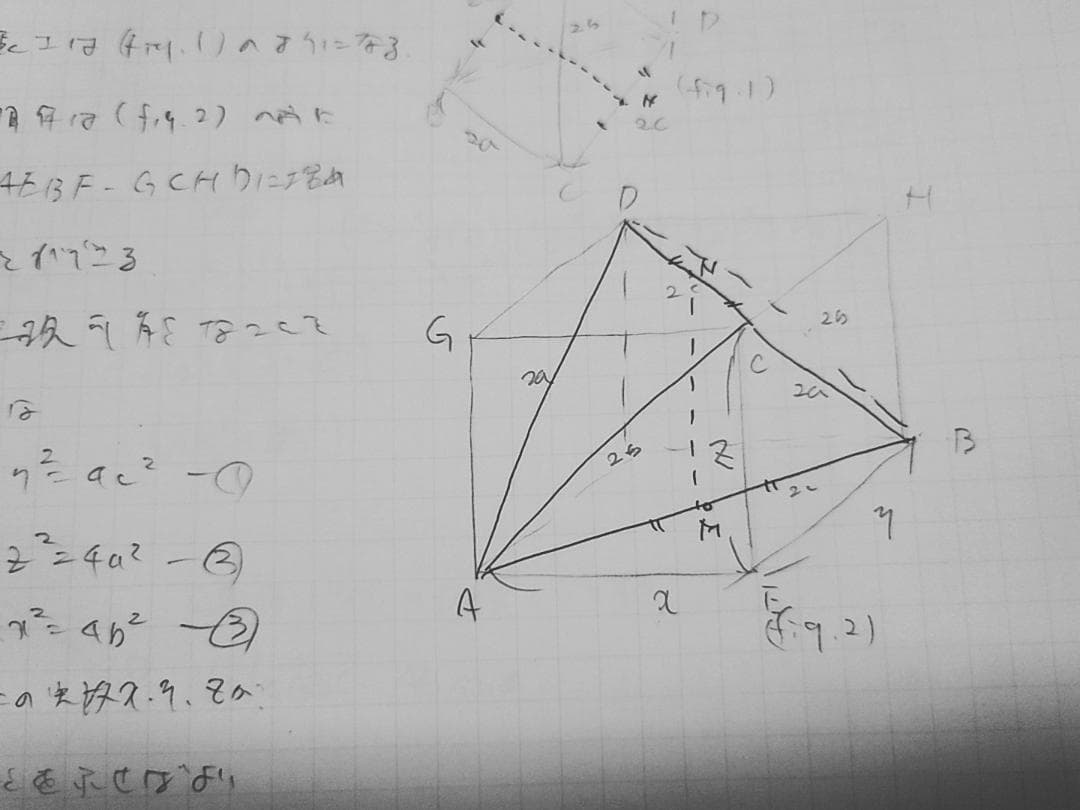 (fig.1)のようになる
(fig.2)の様に
AEBF-GCHDに埋め
とができる
は
y²=4c² -①
z²=4a² -②
x²=4b² -③
の実数x,y,zが
を示せばよい
2b
D
N
2c
(fig.1)
2a
C
D
H
N
2c
G
2b
C
2a
2a
2b
Z
B
2c
M
y
A
x
E
(fig.2)